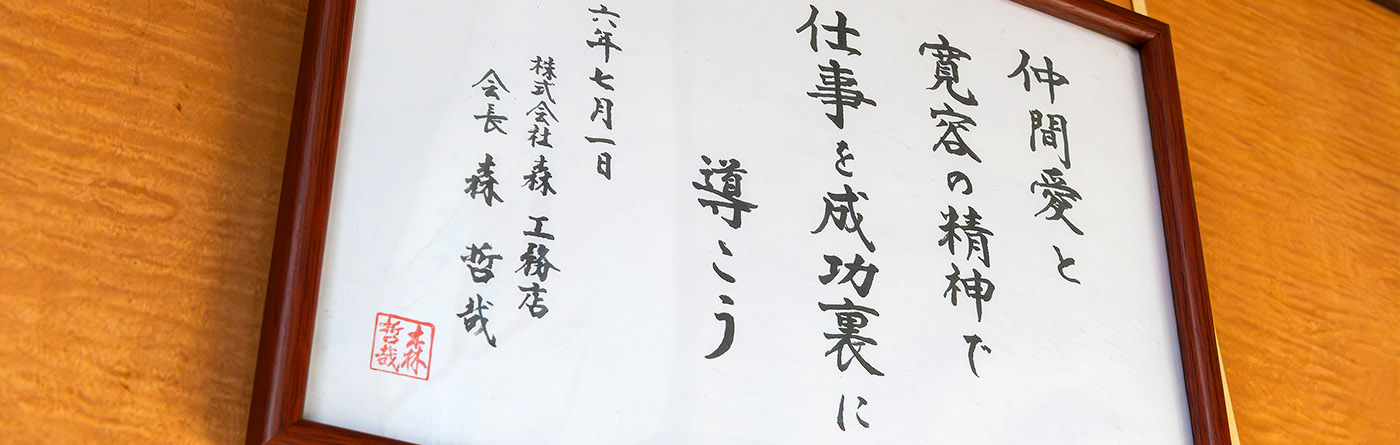 仲間愛と
寛容の精神で
仕事を成功裏に
導こう
六年七月一日
株式会社 森 工務店
会長 森 哲哉
森
哲哉